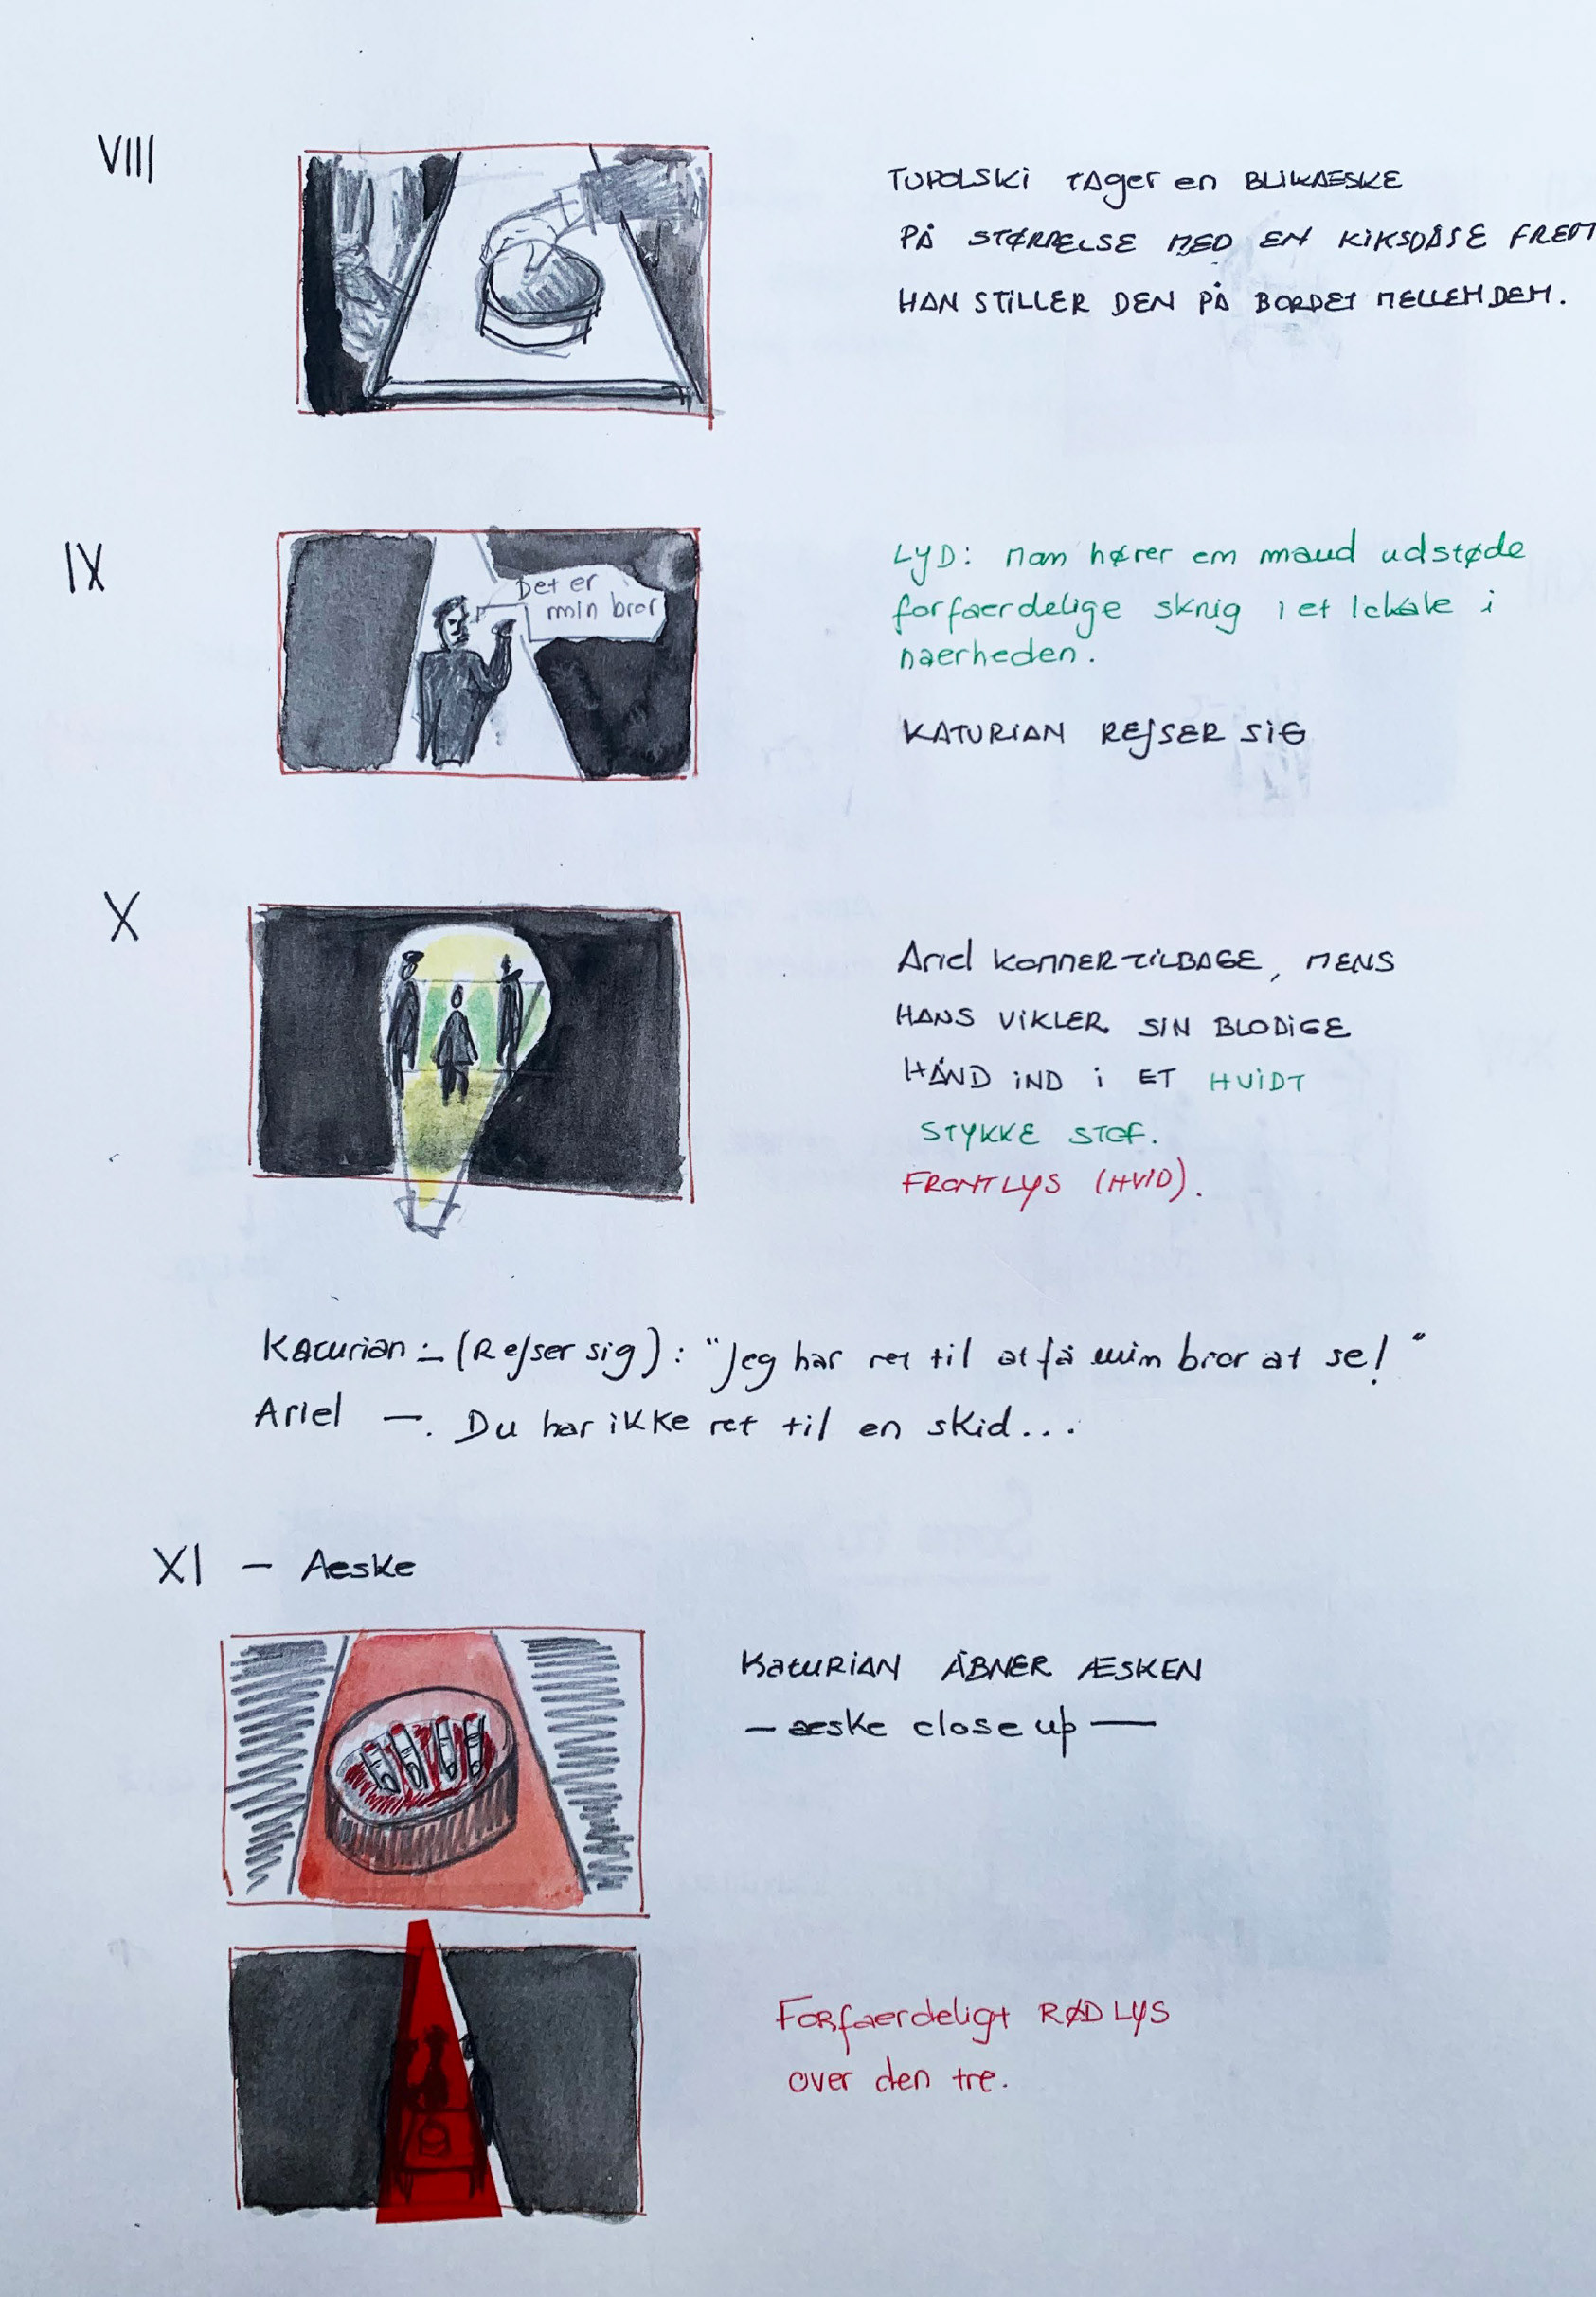 VIII
TUPOLSKI TAGer en BLIKAESKE
PÅ STØRRELSE MED EN KIKSDÅSE FREM
HAN STILLER DEN PÅ BORDET MELLEM DEM.
IX
Det er
min bror
LYD: Man hører em mand udstøde
forfaerdelige skrig i et lokale i
naerheden.
KATURIAN REJSER SIG
X
Ariel KOMMER TILBAGE, MENS
HANS VIKLER SIN BLODIGE
HÅND IND i ET HVIDT
STYKKE STOF.
FRONTLYS (HVID).
Katurian :- (Rejser sig) : "Jeg har ret til at få min bror at se!"
Ariel —. Du har ikke ret til en skid...
XI — Aeske
KatURIAN ÅBNER ÆSKEN
— aeske close up —
FORfaerdeligt RØD LYS
over den tre.